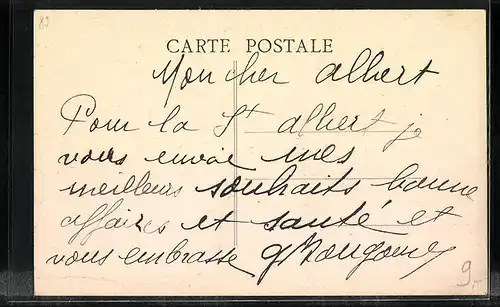 89
CARTE POSTALE
Mon cher Albert
Pour la St Albert je
vous envoie mes
meilleurs souhaits bonne
affaires et santé et
vous embrasse
9.-